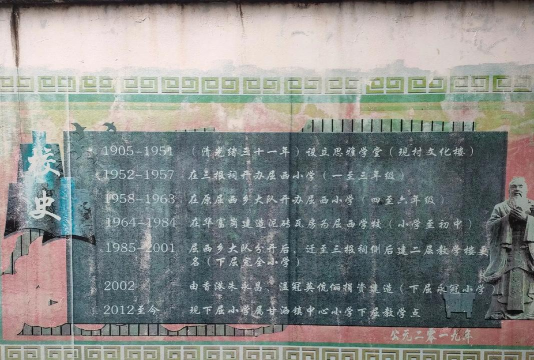 校史
1905-1951 (清光绪三十一年)设立思雅学堂(现村文化楼)
1952-1957 在三报祠开办层西小学(一至三年级)
1958-1963 在原层西乡大队开办层西小学 四至六年级)
1964-1984 在华富岗建造泥砖瓦房为层西学校(小学至初中)
1985-2001 层西乡大队分开后,迁至三报祠侧后建二层教学楼更
名(下层完全小学)
2002 由香港朱永昌、温冠英伉俪捐资建造(下层永冠小学
2012至今 现下层小学属甘洒镇中心小学下层教学点
公元二零一九年